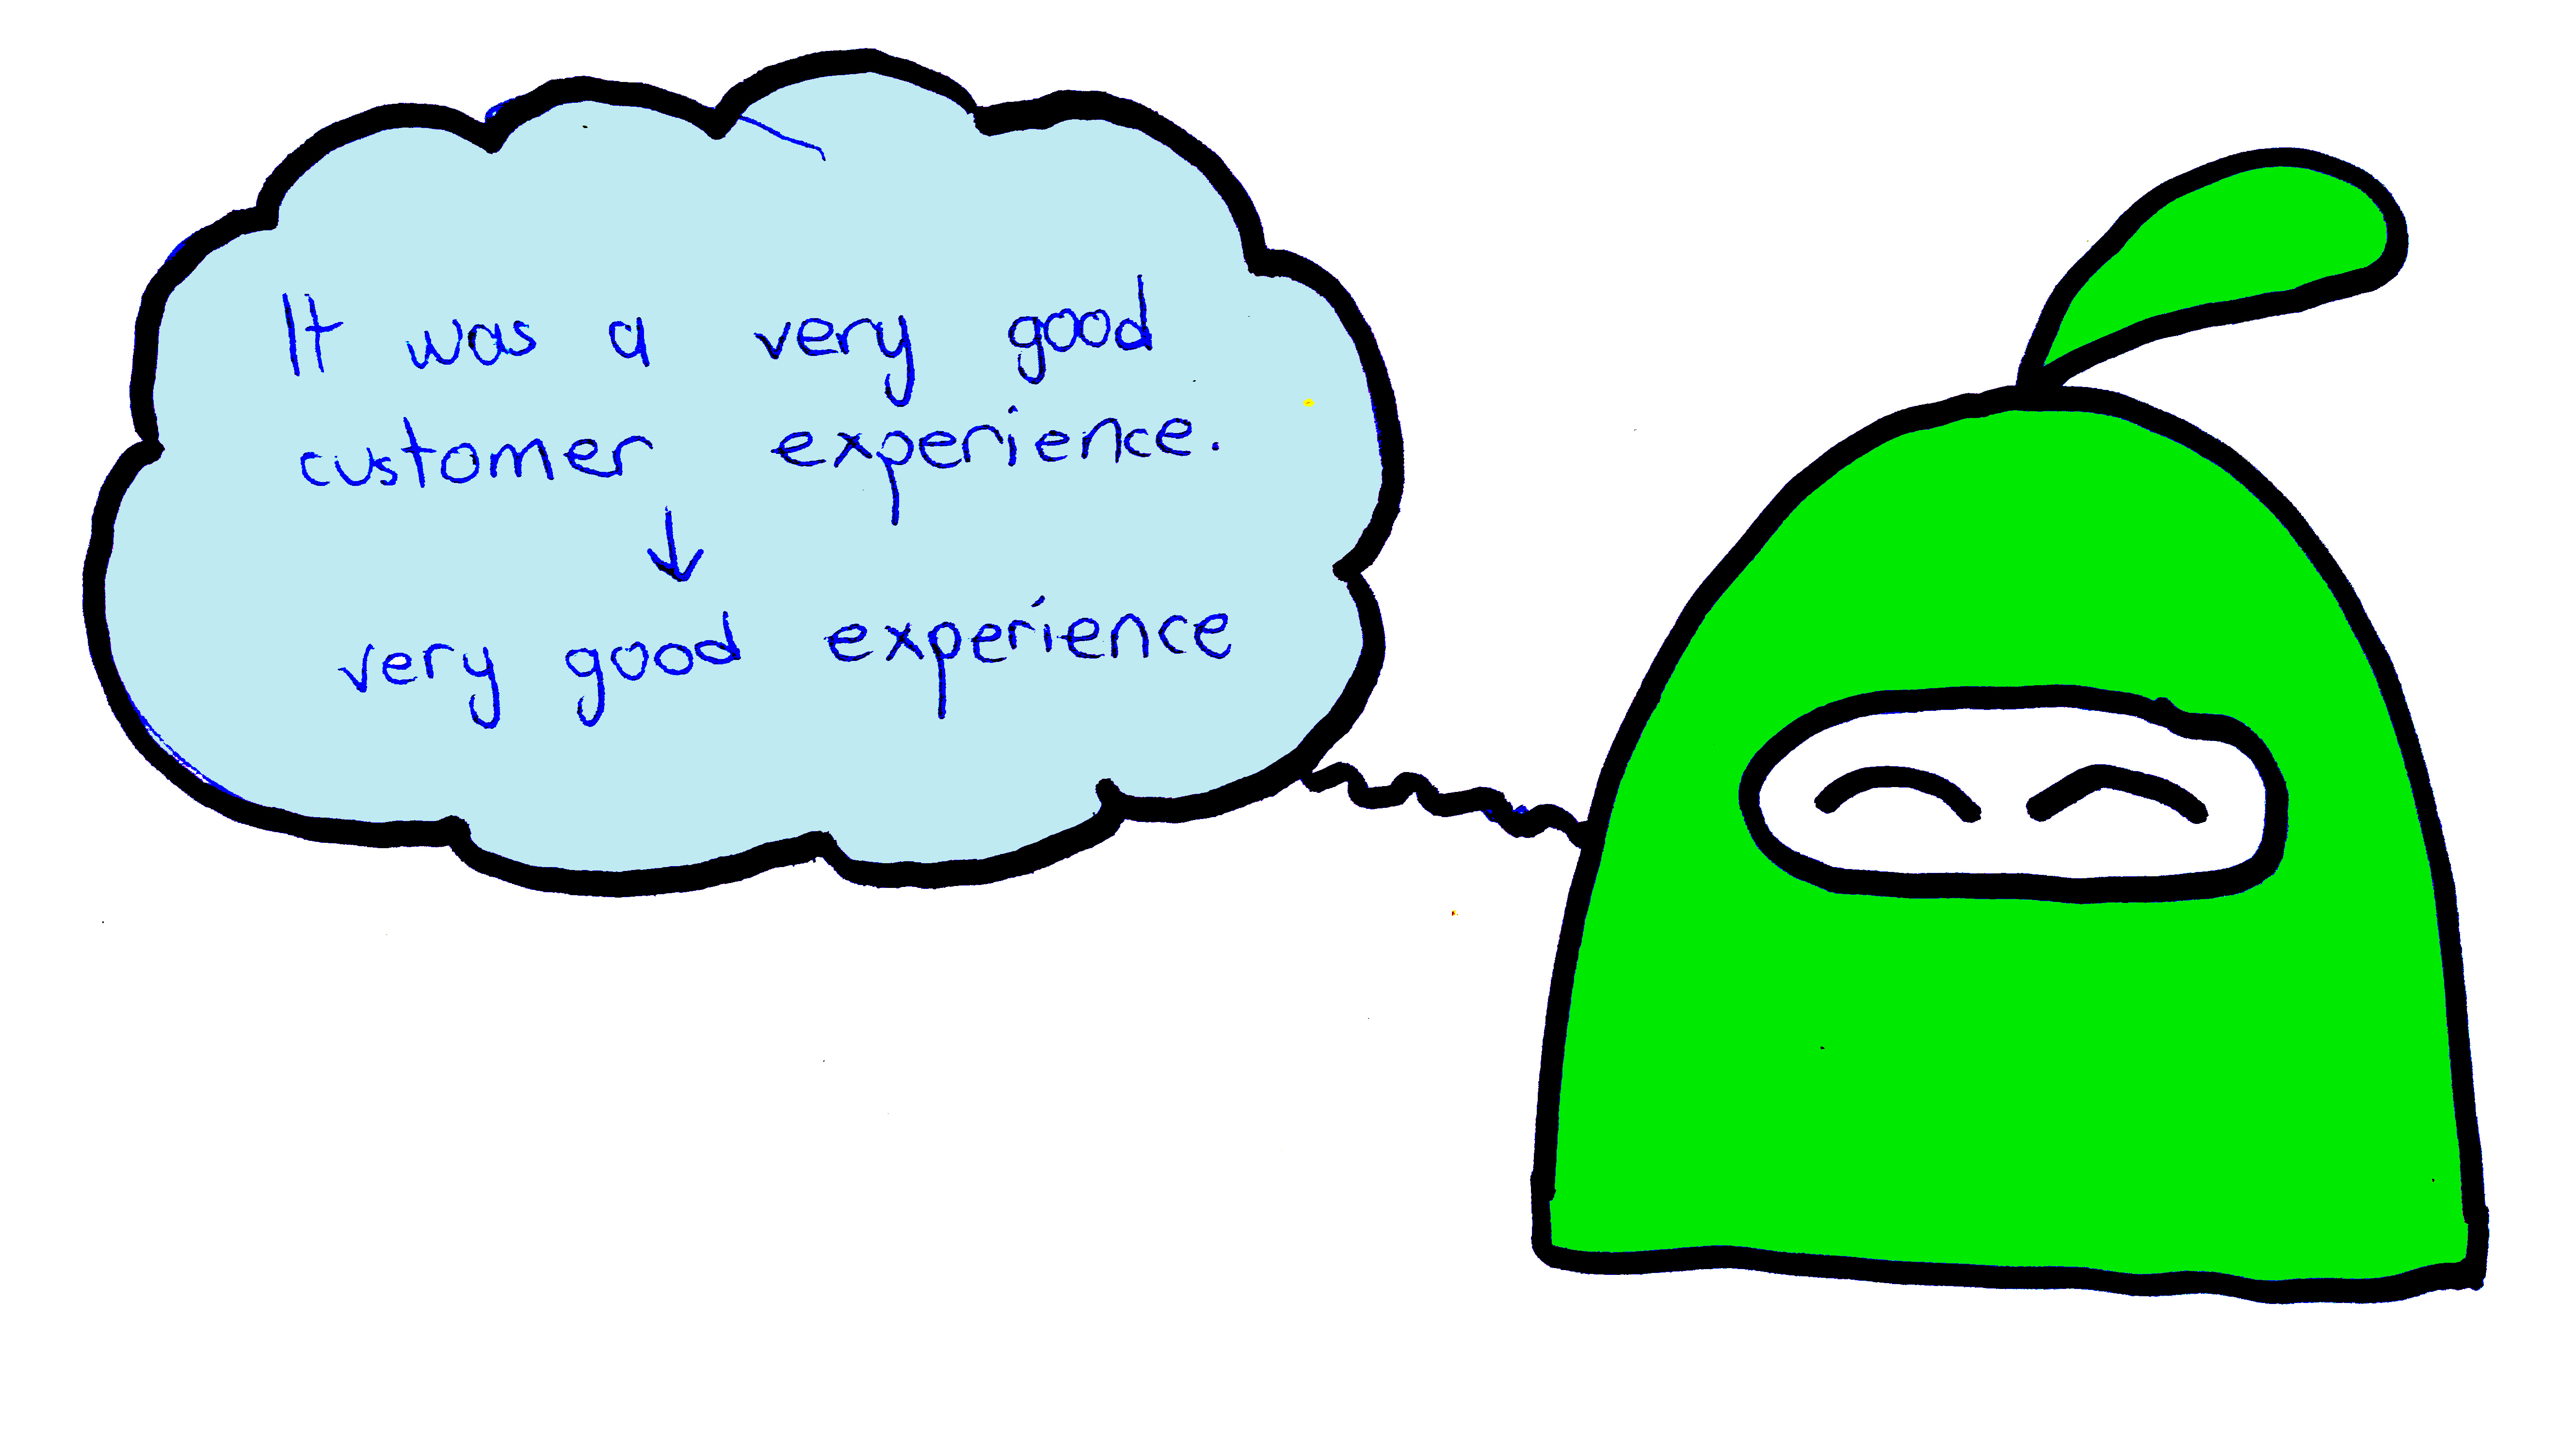 It was a very good
customer experience.
↓
very good experience